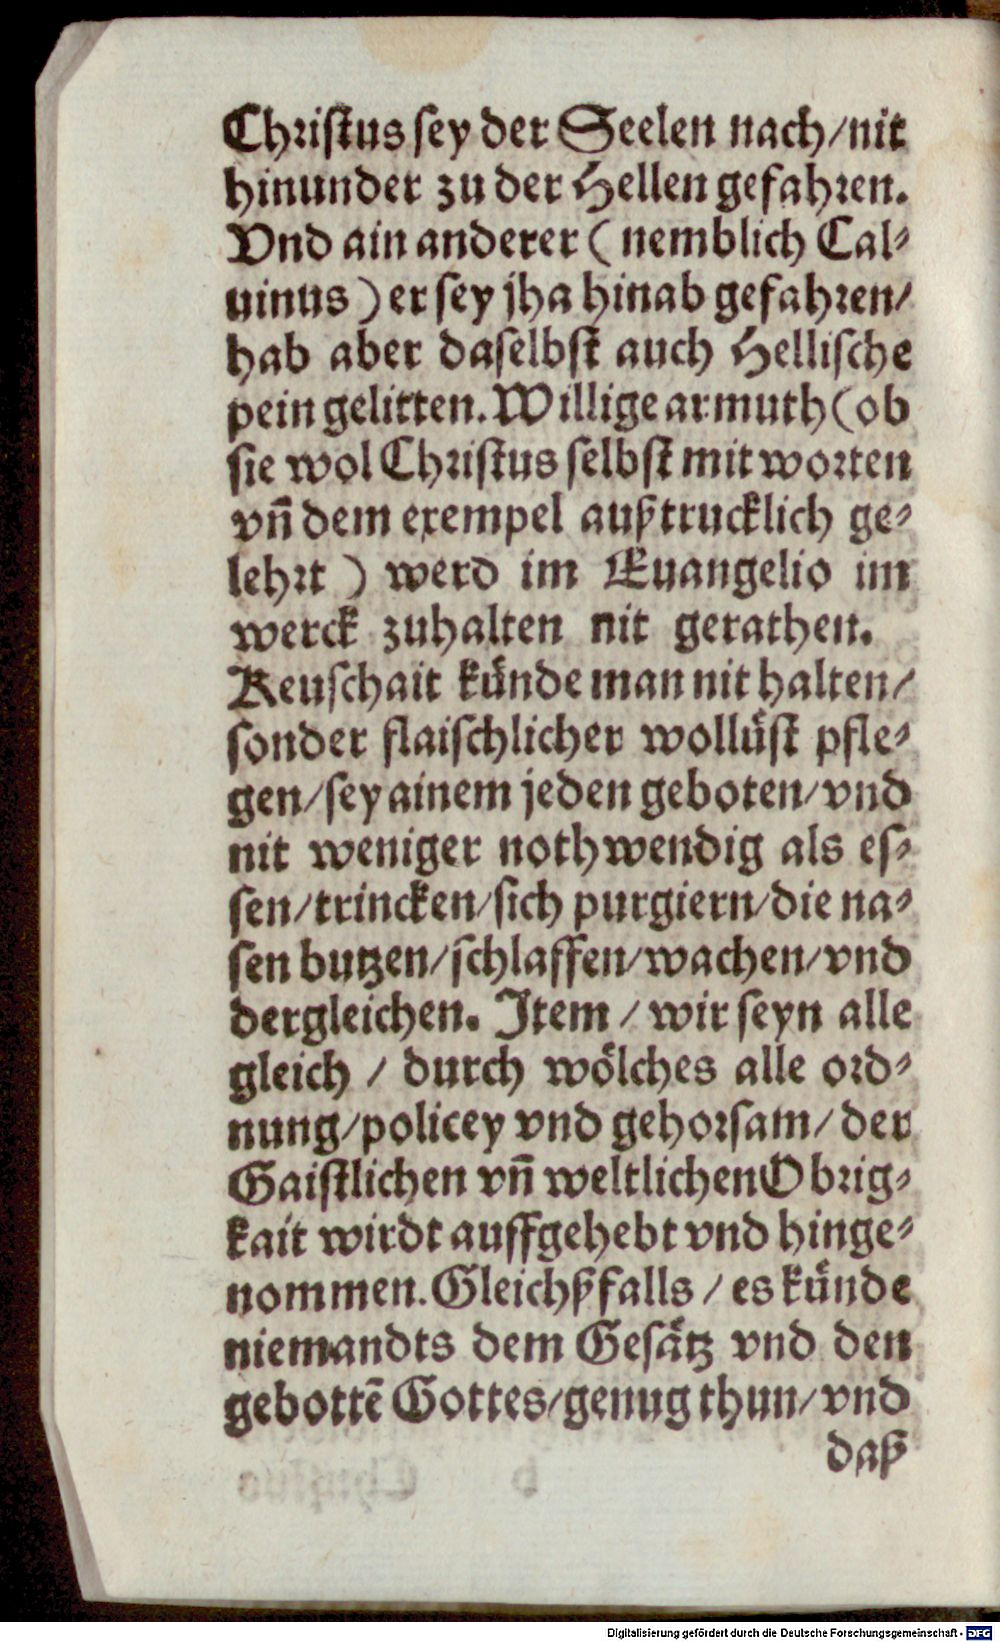 Chriſtus ſey der Seelen nach/nit
hinunder zu der Hellen gefahren.
Vnd ain anderer (nemblich Cal⸗
uinus) er ſey jha hinab gefahren/
hab aber daſelbſt auch Helliſche
pein gelitten. Willige armuth (ob
ſie wol Chriſtus ſelbſt mit worten
vñ dem exempel außtrucklich ge⸗
lehrt) werd im Euangelio im
werck zuhalten nit gerathen.
Keuſchait kuͤnde man nit halten/
ſonder flaiſchlicher wolluͤſt pfle⸗
gen/ſey ainem jeden geboten/vnd
nit weniger nothwendig als eſ⸗
ſen/trincken/ſich purgiern/die na⸗
ſen butzen/ſchlaffen/wachen/vnd
dergleichen. Item/wir ſeyn alle
gleich/durch woͤlches alle ord⸗
nung/policey vnd gehorſam/der
Gaiſtlichen vñ weltlichen Obrig⸗
kait wirdt auffgehebt vnd hinge⸗
nommen. Gleichßfalls/es kuͤnde
niemandts dem Geſaͤtz vnd den
gebottē Gottes/genug thun/vnd
daß
Digitalisierung gefördert durch die Deutsche Forschungsgemeinschaft - DFG